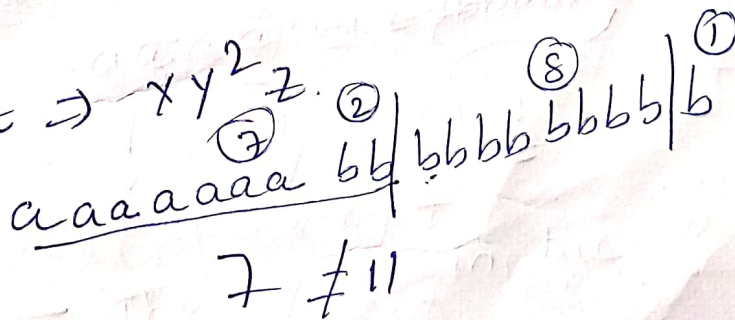 ⇒ xy²z.
⑦ ② ⑧ ①
aaaaaaa bb|bbbbbbbb|b
7 ≠ 11